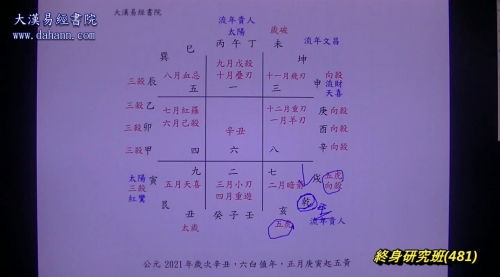 大漢易經書院
www.dahann.com
流年貴人
太陽
歲破
流年文昌
巳 丙 午 丁 未
巽 坤
九月戊殺
八月血忌 十月疊刃 十一月飛刃
五 一 三
三殺 辰
申 向殺
流財
天喜
三殺 乙
三殺 卯
三殺 甲
七月紅羅
六月己殺
四
辛丑
六
十二月重刃
一月羊刃
八
庚 向殺
酉 向殺
辛 向殺
九 二 七
太陽
三殺
紅鸞
寅
五月天喜
三月小刃
四月重遊
二月暗
戌
向殺
乾
艮
丑 癸 子 壬 亥
太歲
流年貴人
公元 2021 年歲次辛丑,六白值年,正月庚寅起五黃
終身研究班(481)